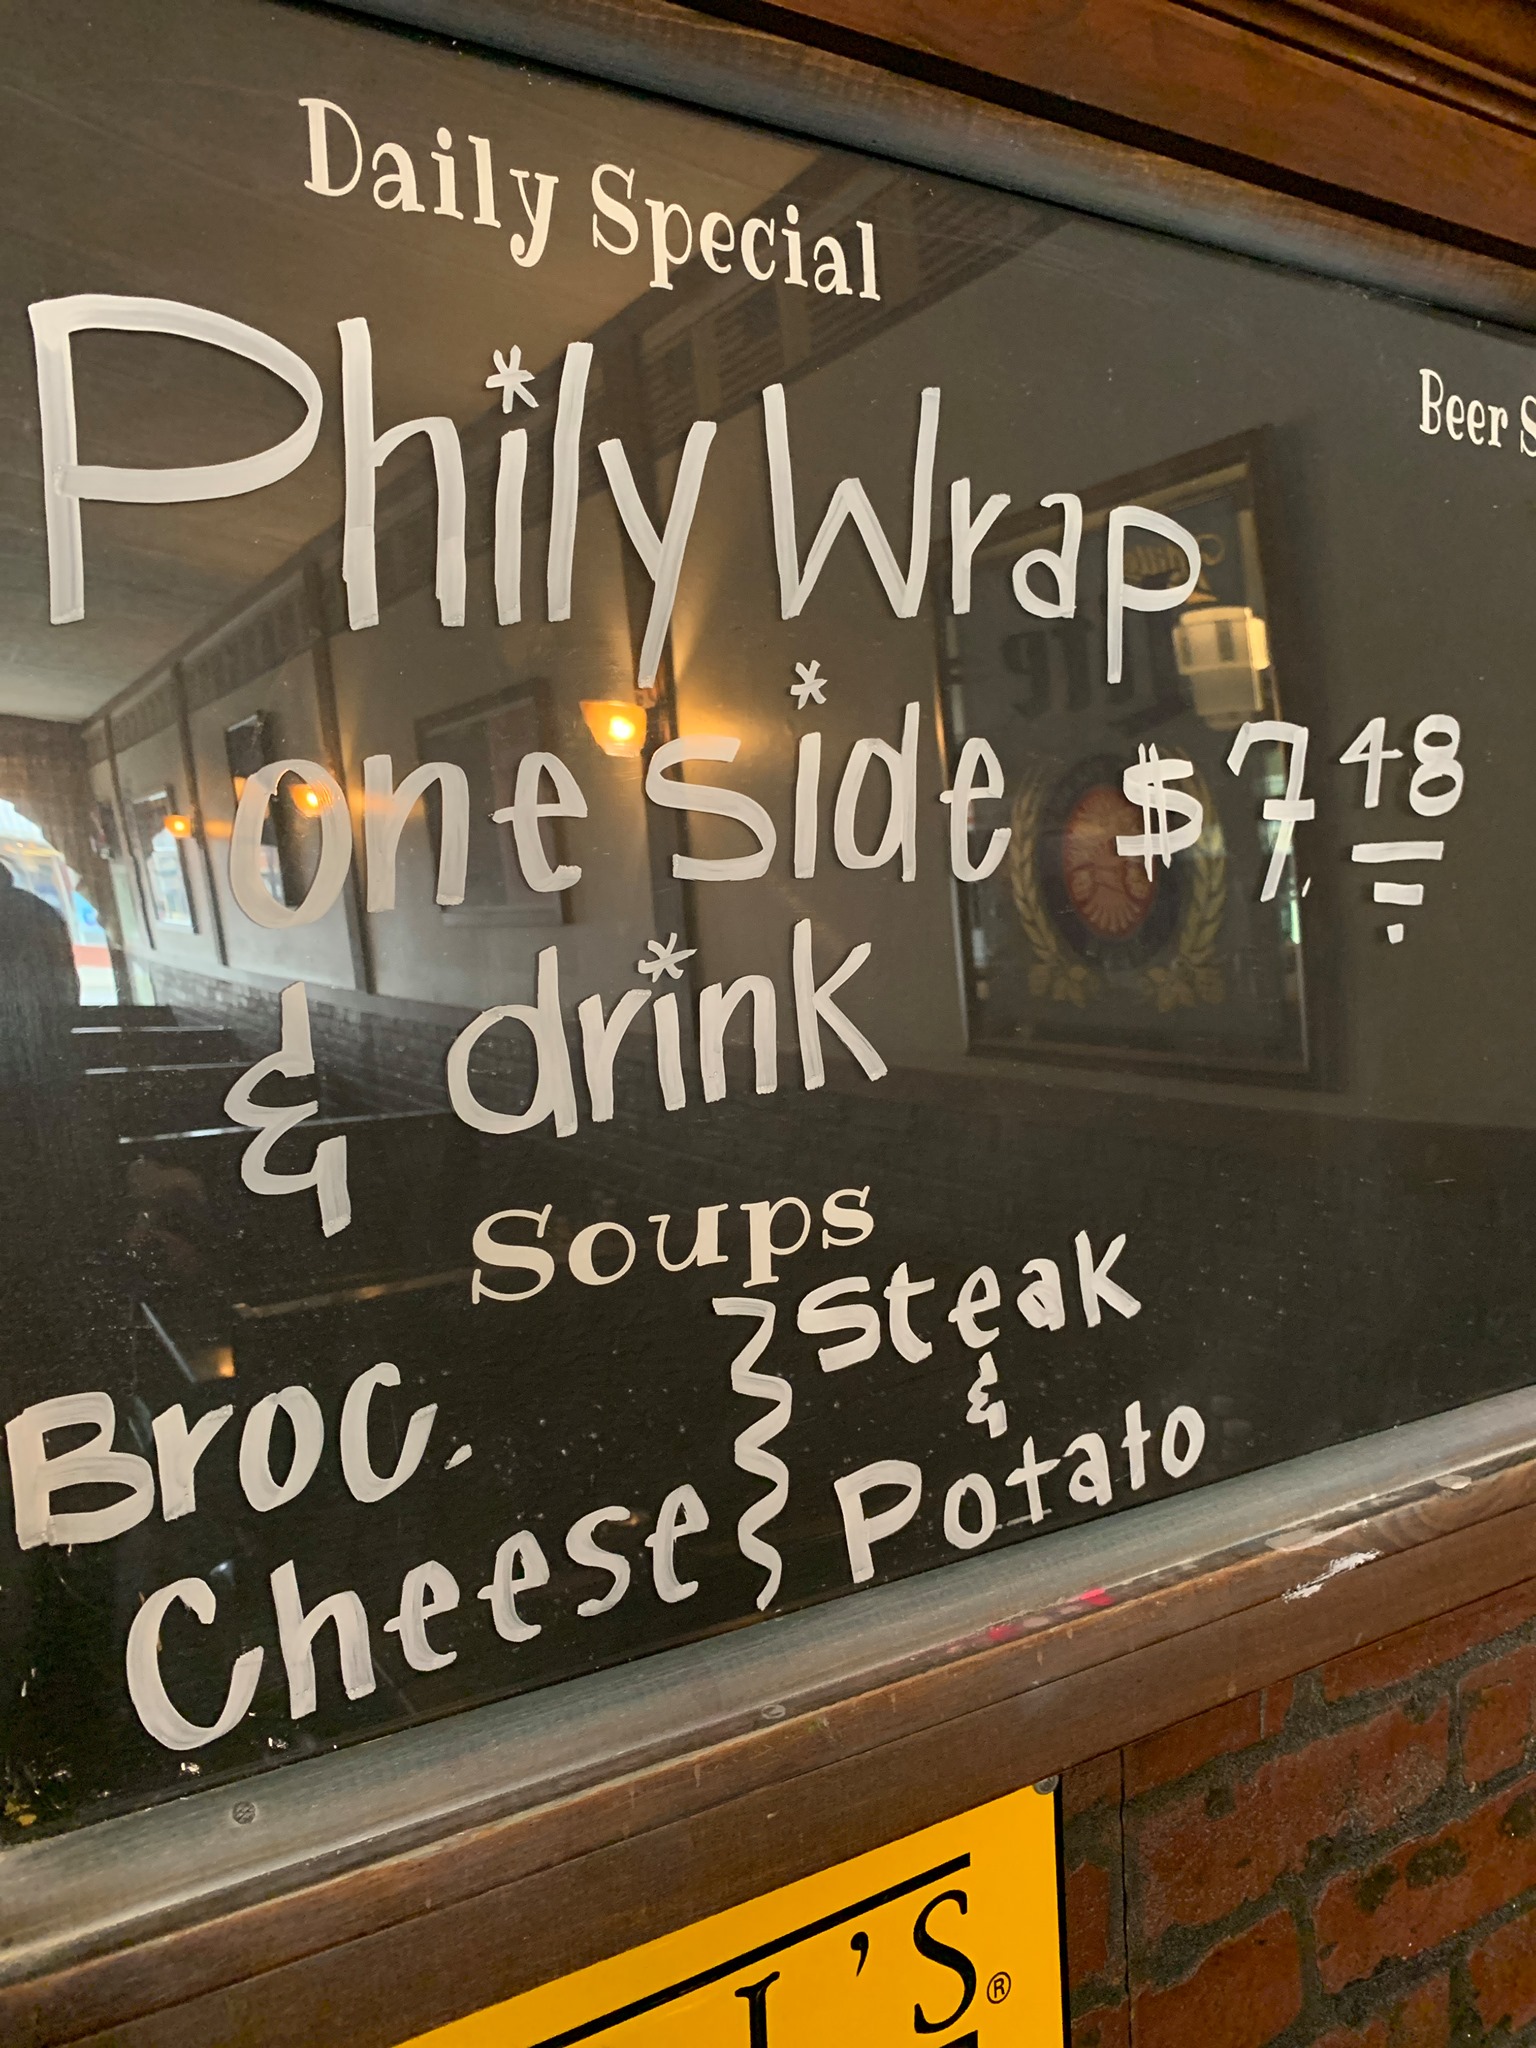 Daily Special
Phily Wrap
one side $7.48
& drink
Beer S
Soups
Broc.
Cheese
Steak
&
Potato
'S®